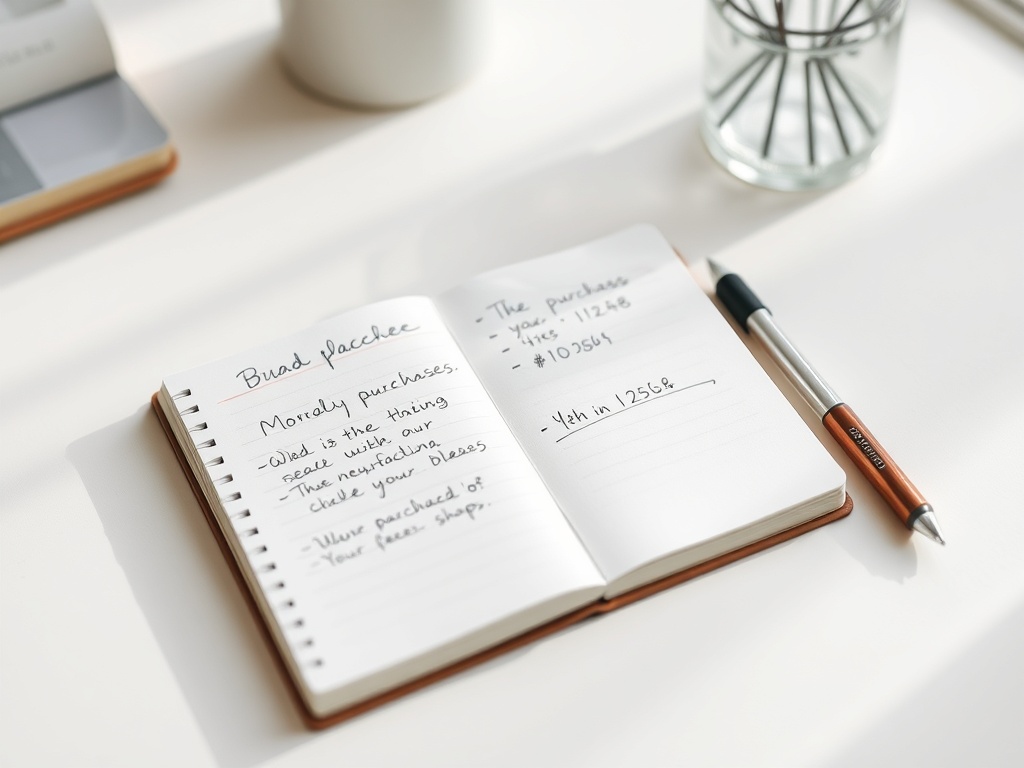 Buad placchee
Morraly purchases.
-Wlad is the thising
seace with our
- The neyrfactina
chele your bleses
- Wluur parchacd 'of
- Your feces shaps.
- The purchass
- year · 11248
- yres
- #103564
- Yeh in 12568